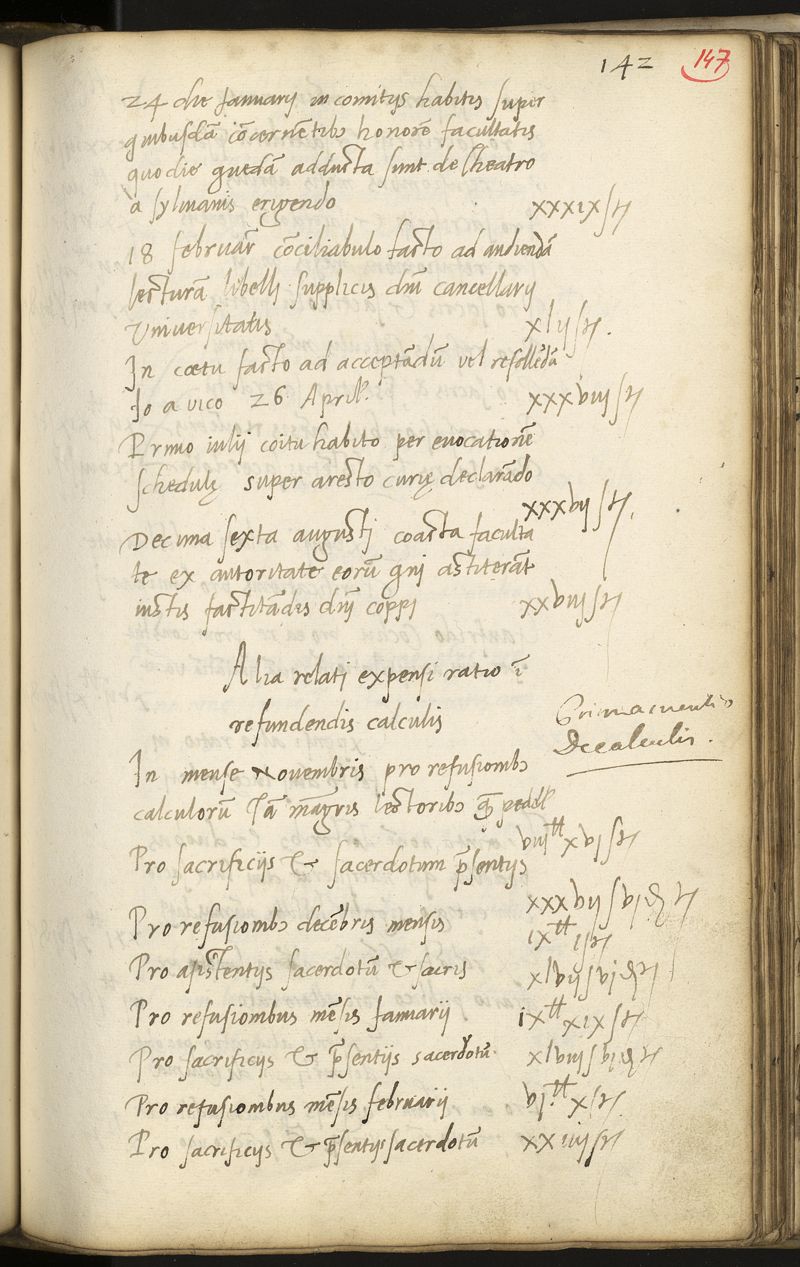 142 147
24 die Januarij in comitijs habitis super
quibusdā cōcernētibꝰ honorē facultatis
quo die quedā adducta sunt de theatro
a sylvanis erigendo xxxix ſ tz
18 februar̄ cōciliabulo facto ad audiendā
lecturā libelli supplicis dn̄i cancellarij
Universitatis xlij ſ tz.
In cœtu facto ad acceptādū vel repellēdū
Jo a vico 26 April. xxxviij ſ tz
Primo iulij coitu habito per evocationē
schedulę super aresto curię declarādo
xxxvij ſ tz.
Decima sexta augusti coacta faculta
te ex autoritate eorū qui astiterāt
iustis factitādis dn̄i coppi xxviij ſ tz
Alia relati expensi ratio ī
refundendis calculis
In mense Novembris pro refusionibꝰ
calculorū tā maḡris lectoribꝰ q̄ pedell.
viij ℔ xvj ſ tz
Pro sacrificijs & sacerdotum p̄sentijs
xxxvij ſ vj ꝺ tz
Pro refusionibꝰ decēbris mensis
ix ℔ ij ſ tz
Pro assistentijs sacerdotū & sacris xlvij ſ vj ꝺ tz
Pro refusionibus mēsis Januarii ix ℔ xix ſ tz
Pro sacrificijs & p̄sentijs sacerdotū xlviij ſ vj ꝺ tz
Pro refusionibus mēsis februarii vj. ℔ x ſ tz.
Pro sacrificijs & p̄sentijs sacerdotū xxiiij ſ tz